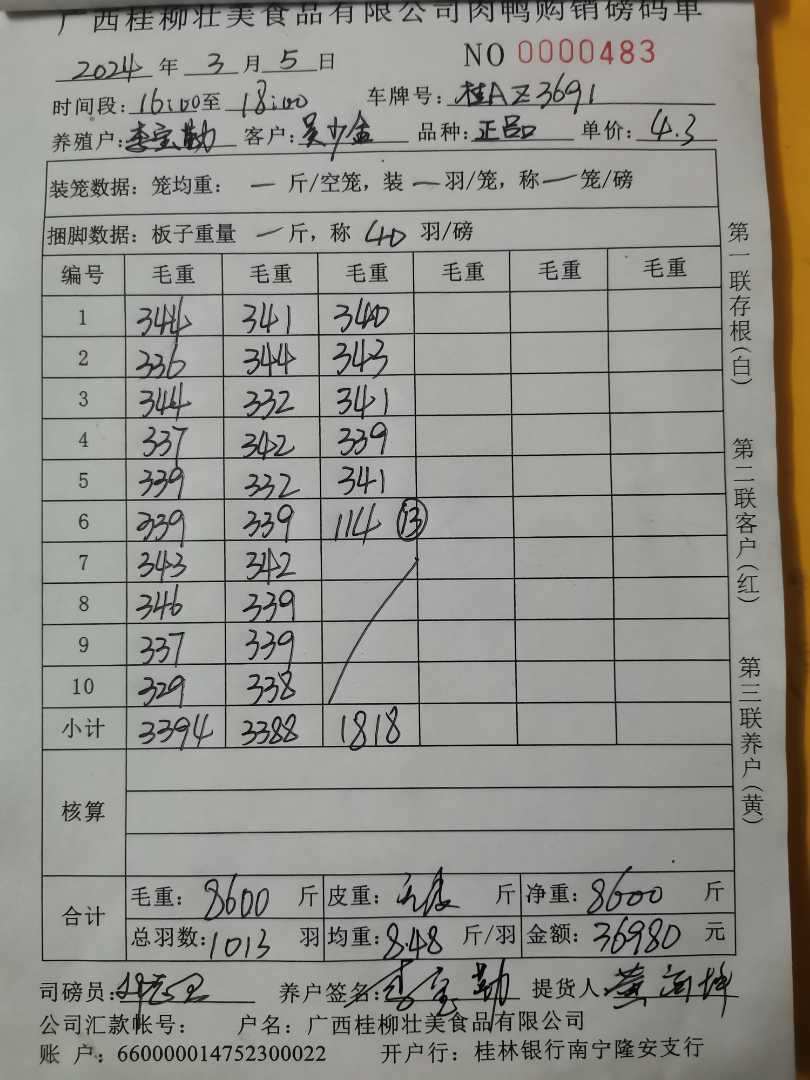 广西桂柳壮美食品有限公司肉鸭购销磅码单
2024 年 3 月 5 日 NO 0000483
时间段: 16:00 至 18:00 车牌号: 桂AZ3691
养殖户: 李宝勤 客户: 吴少金 品种: 正品 单价: 4.3
装笼数据: 笼均重: 一 斤/空笼, 装 一 羽/笼, 称 一 笼/磅
捆脚数据: 板子重量 一 斤, 称 40 羽/磅
编号 毛重 毛重 毛重 毛重 毛重 毛重
1 344 341 340
2 336 344 343
3 344 332 341
4 337 342 339
5 339 332 341
6 339 339 114 13
7 343 342
8 346 339
9 337 339
10 329 338
小计 3394 3388 1818
核算
合计 毛重: 8600 斤 皮重: 斤 净重: 8600 斤
总羽数: 1013 羽 均重: 8.48 斤/羽 金额: 36980 元
司磅员: 养户签名: 李宝勤 提货人: 黄
公司汇款帐号: 户名: 广西桂柳壮美食品有限公司
账 户: 660000014752300022 开户行: 桂林银行南宁隆安支行
第一联存根(白)
第二联客户(红)
第三联养户(黄)